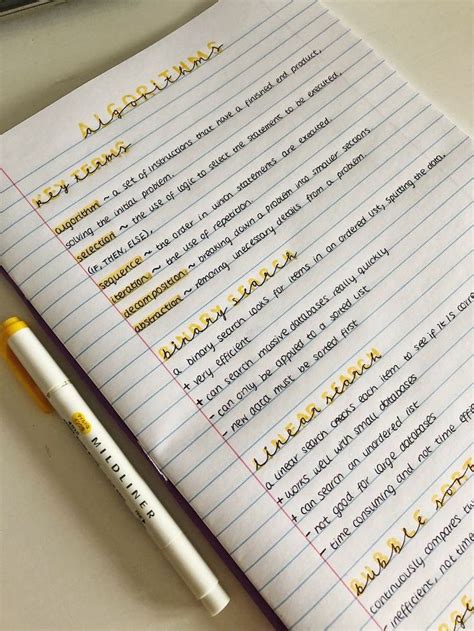 ALGORITHMS
algorithms
KEY TERMS
algorithm ~ a set of instructions that have a finished end product,
solving the initial problem.
selection ~ the use of logic to select the statement to be executed.
(IF, THEN, ELSE).
sequence ~ the order in which statements are executed.
iteration ~ the use of repetition.
decomposition ~ breaking down a problem into smaller sections
abstraction ~ removing unnecessary details from a problem.
BINARY SEARCH
binary search
a binary search looks for items in an ordered list, splitting the data.
+ very efficient
+ can search massive databases really quickly
- can only be applied to a sorted list
- new data must be sorted first
LINEAR SEARCH
linear search
a linear search checks each item to see if it is corre
+ works well with small databases
+ can search an unordered list
- not good for large databases
- time consuming and not time effi
BUBBLE SORT
bubble sort
continuously compares tw
- inefficient, not time
MILDLINER